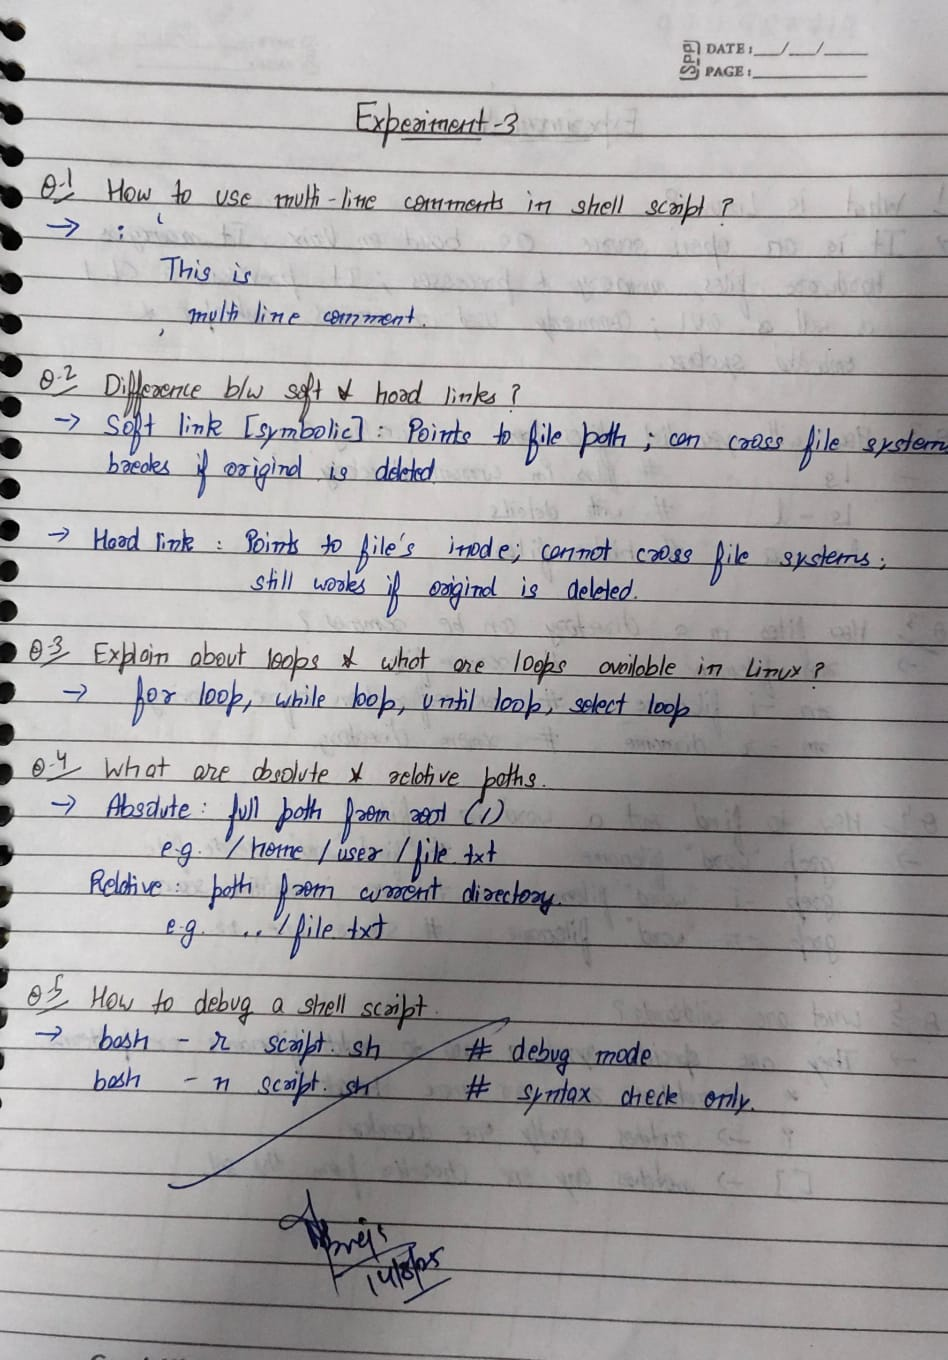 Sippi DATE: __/__/____
PAGE: ________
Experiment-3
Q-1 How to use multi-line comments in shell script?
→ : '
This is
multi line comment.
'
Q-2 Difference b/w soft & hard links?
→ Soft link [symbolic]: Points to file path; can cross file system
breaks if original is deleted.
→ Hard link : Points to file's inode; cannot cross file systems;
still works if original is deleted.
Q-3 Explain about loops & what are loops available in Linux?
→ for loop, while loop, until loop, select loop
Q-4 What are absolute & relative paths.
→ Absolute: full path from root (/)
e.g. /home/user/file.txt
Relative: path from current directory.
e.g. ../file.txt
Q 5 How to debug a shell script.
→ bash - x script.sh # debug mode
bash - n script.sh # syntax check only.
14/8/25